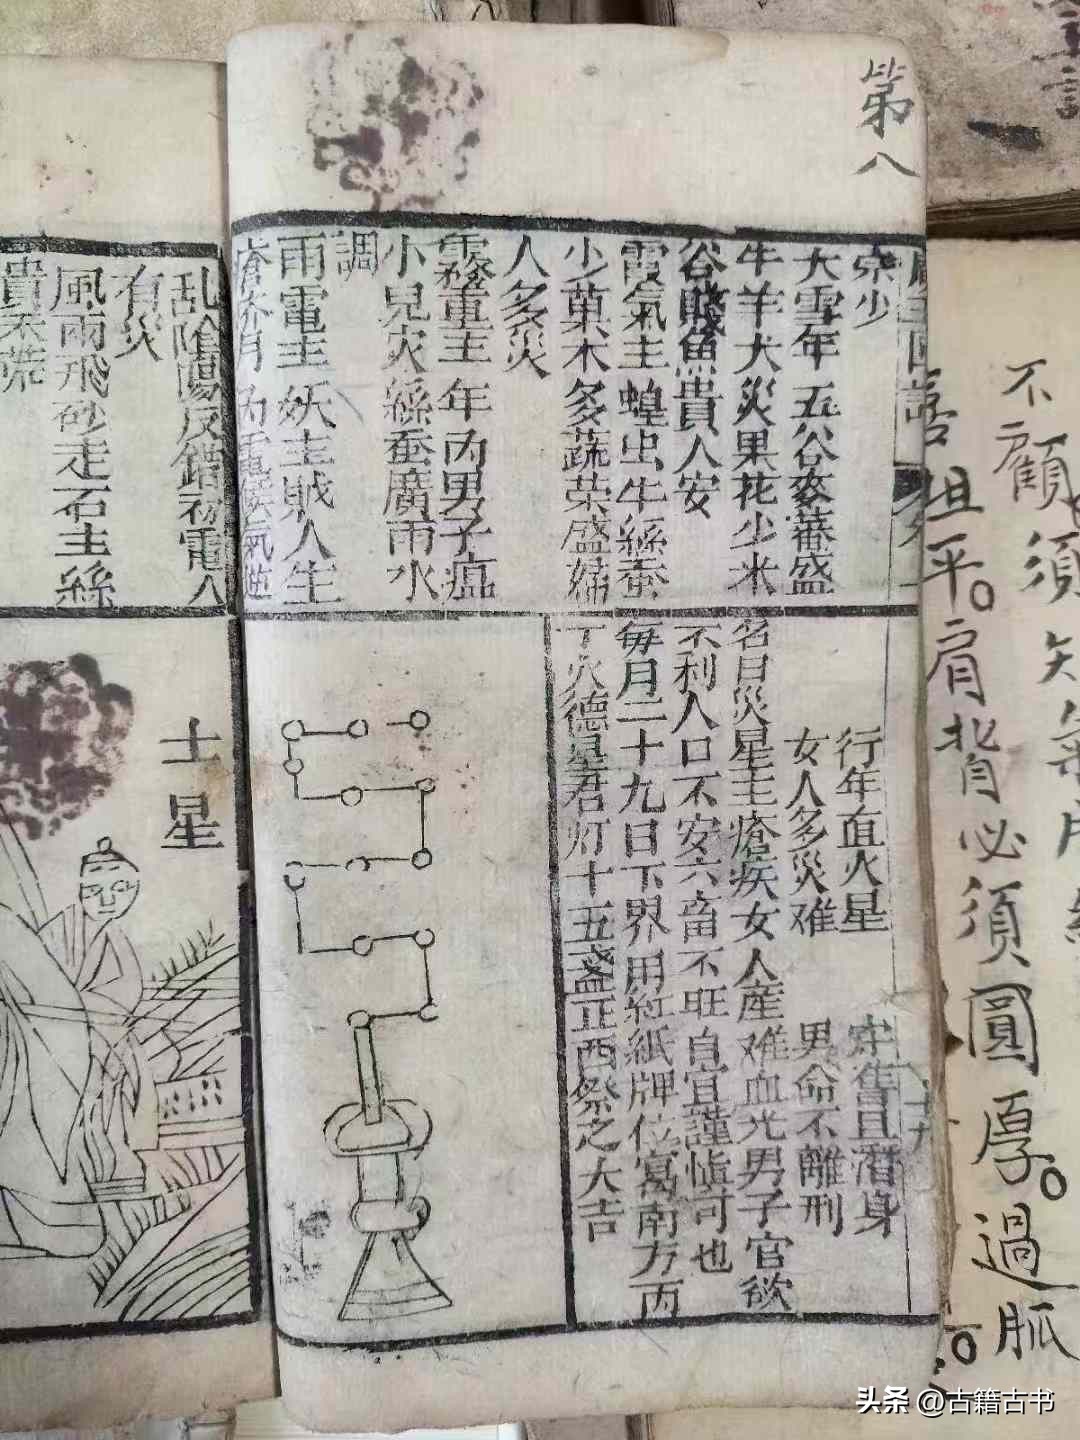 第八
菜少
大雪年 五谷麥蕃盛
牛羊犬災果花少米
谷賤魚貴人安
霞氣主蝗虫牛絲蚕
少菓木多蔬荣盛婦
人多災
霧重主年内男子瘟
小兒灾絲蚕廣雨水
調
雨電主妖主賊人生
行年血火星 牢獄且潛身
女人多災难 男命不離刑
名曰災星主瘡疾女人産难血光男子官欲
不利人口不安六畜不旺自宜謹慎可也
每月二十九日下界用紅紙牌位寫南方丙
丁火德星君灯十五盏正西祭之大吉
乱陰陽反錯初電人
有災
風雨飛砂走石主絲
貴禾荒
土星
不顧須知
且平。肩背必須圓厚。過胍
头条 @古籍古书